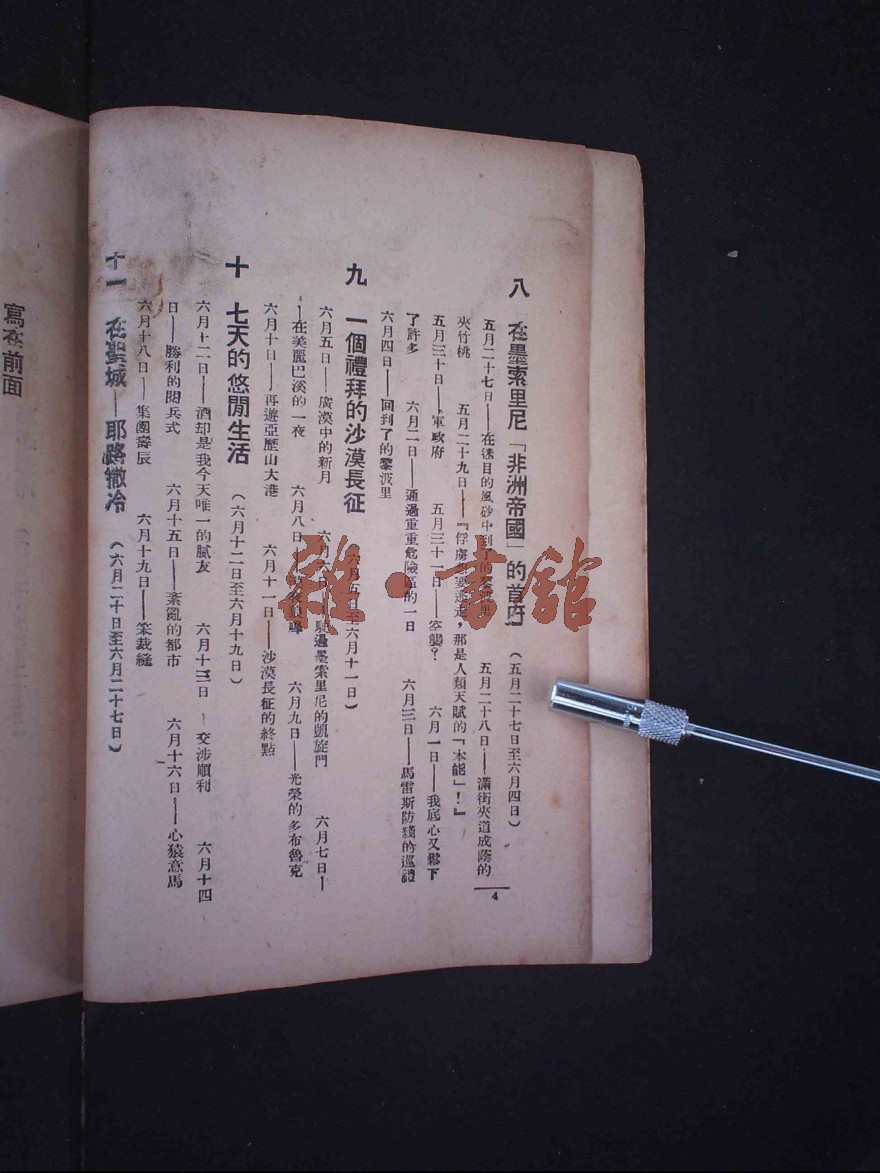 八　在墨索里尼「非洲帝國」的首府（五月二十七日至六月四日）
五月二十七日——在迷目的風砂中到了的黎波里　五月二十八日——滿街夾道成蔭的
夾竹桃　五月二十九日——『俘虜要逃走，那是人類天賦的「本能」！』
五月三十日——軍政府　五月三十一日——空襲？　六月一日——我底心又鬆下
了許多　六月二日——通過重重危險區的一日　六月三日——馬雷斯防綫的巡禮
六月四日——回到了的黎波里
九　一個禮拜的沙漠長征（六月五日至六月十一日）
六月五日——廣漠中的新月　六月六日——駛過墨索里尼的凱旋門　六月七日—
—在美麗巴溪的一夜　六月八日——　六月九日——光榮的多布魯克
六月十日——再遊亞歷山大港　六月十一日——沙漠長征的終點
十　七天的悠閒生活（六月十二日至六月十九日）
六月十二日——酒却是我今天唯一的膩友　六月十三日——交涉順利　六月十四
日——勝利的閱兵式　六月十五日——紊亂的都市　六月十六日——心猿意馬
六月十八日——集團壽辰　六月十九日——笨裁縫
十一　在聖城——耶路撒冷（六月二十日至六月二十七日）
4
寫在前面
雜·書館